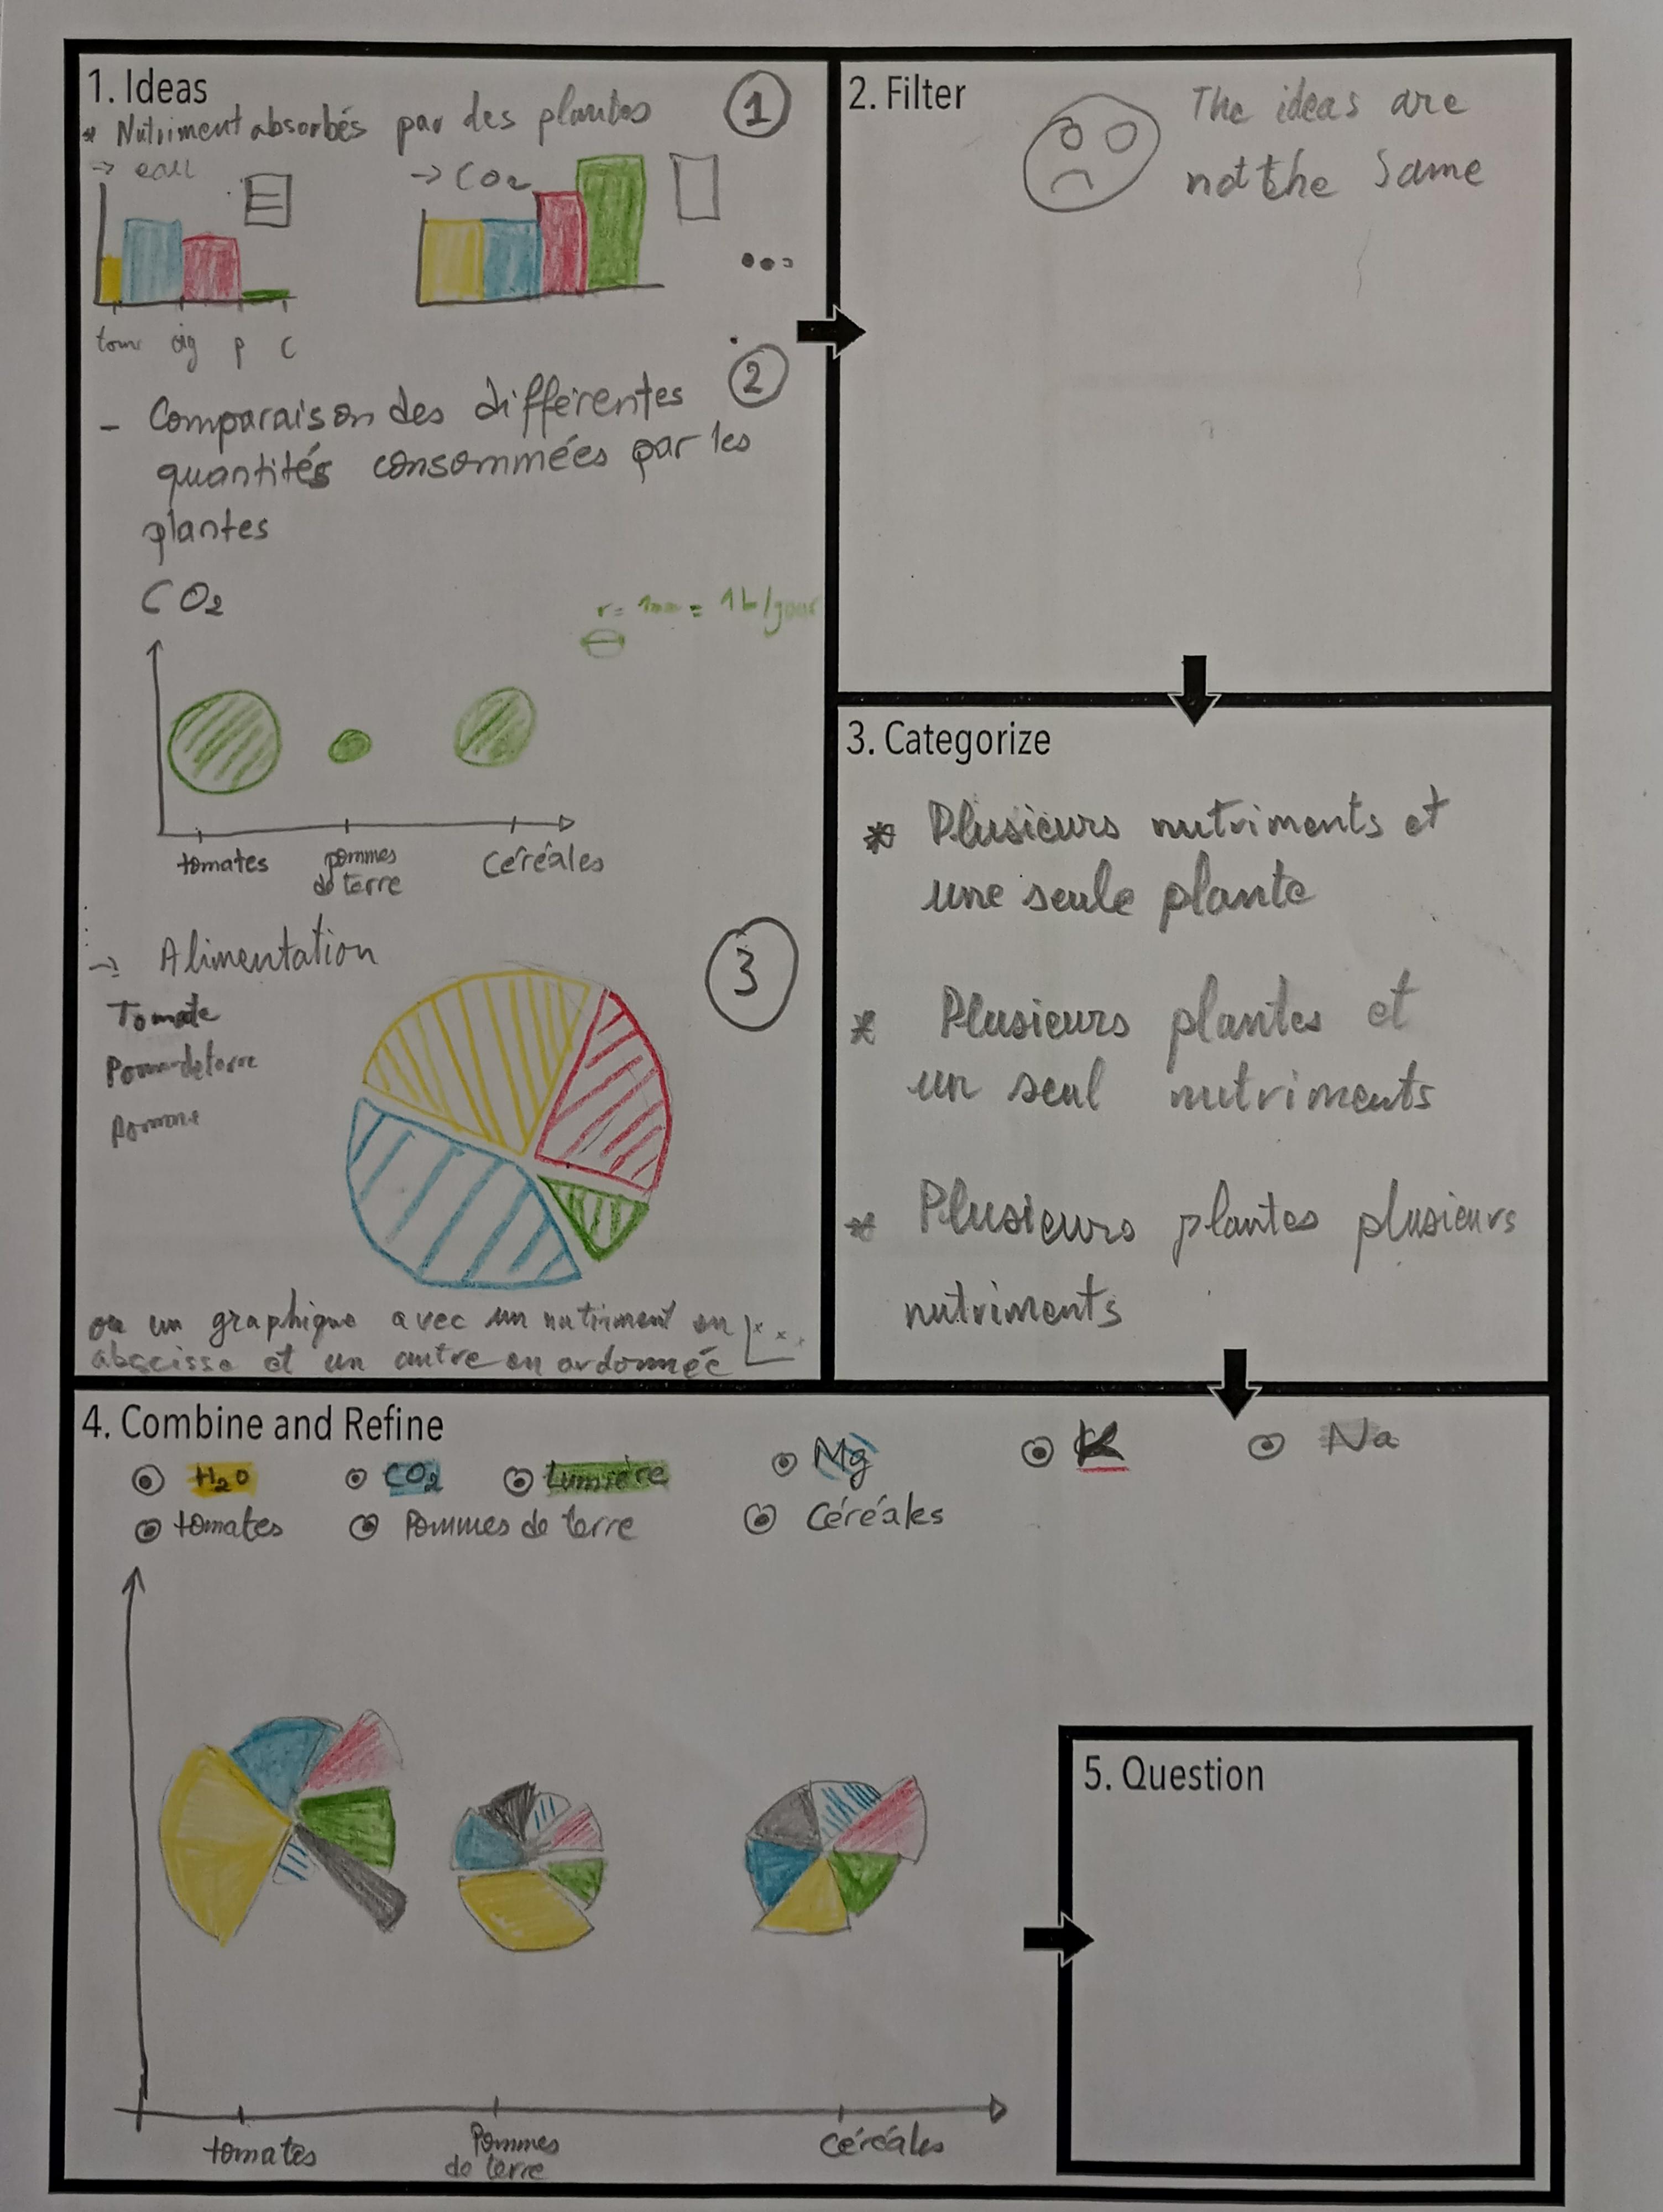 1. Ideas
* Nutriment absorbés par des plantes
1
→ eau
→ CO2
...
tom oig p c
2
- Comparaison des différentes
quantités consommées par les
plantes
CO2
1L/jour
tomates
pommes
de terre
céréales
→ Alimentation
3
Tomate
Pomme de terre
Pomme
ou un graphique avec un nutriment en
abscisse et un autre en ordonnée
2. Filter
The ideas are
not the same
3. Categorize
* Plusieurs nutriments et
une seule plante
* Plusieurs plantes et
un seul nutriments
* Plusieurs plantes plusieurs
nutriments
4. Combine and Refine
H2O CO2 Lumière Mg K Na
tomates Pommes de terre Céréales
tomates
Pommes
de terre
céréales
5. Question